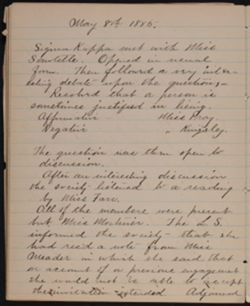 May 8th 1886.
Sigma Kappa met with Miss
Opened in usual
form. Then followed a very inter-
esting debate upon the question;-
Resolved that a person is
sometimes justified in lieing.
Affirmative Miss Pray.
Negative " Kingsley.
The question was then open to
discussion.
After an interesting discussion
the society listened to a reading
by Miss Farr.
All of the members were present
but Miss The L. S.
informed the society that she
had rec'd a note from Miss
Meader in which she said that
on account of a previous engagement
she would not be able to accept
the invitation extended Adjourned